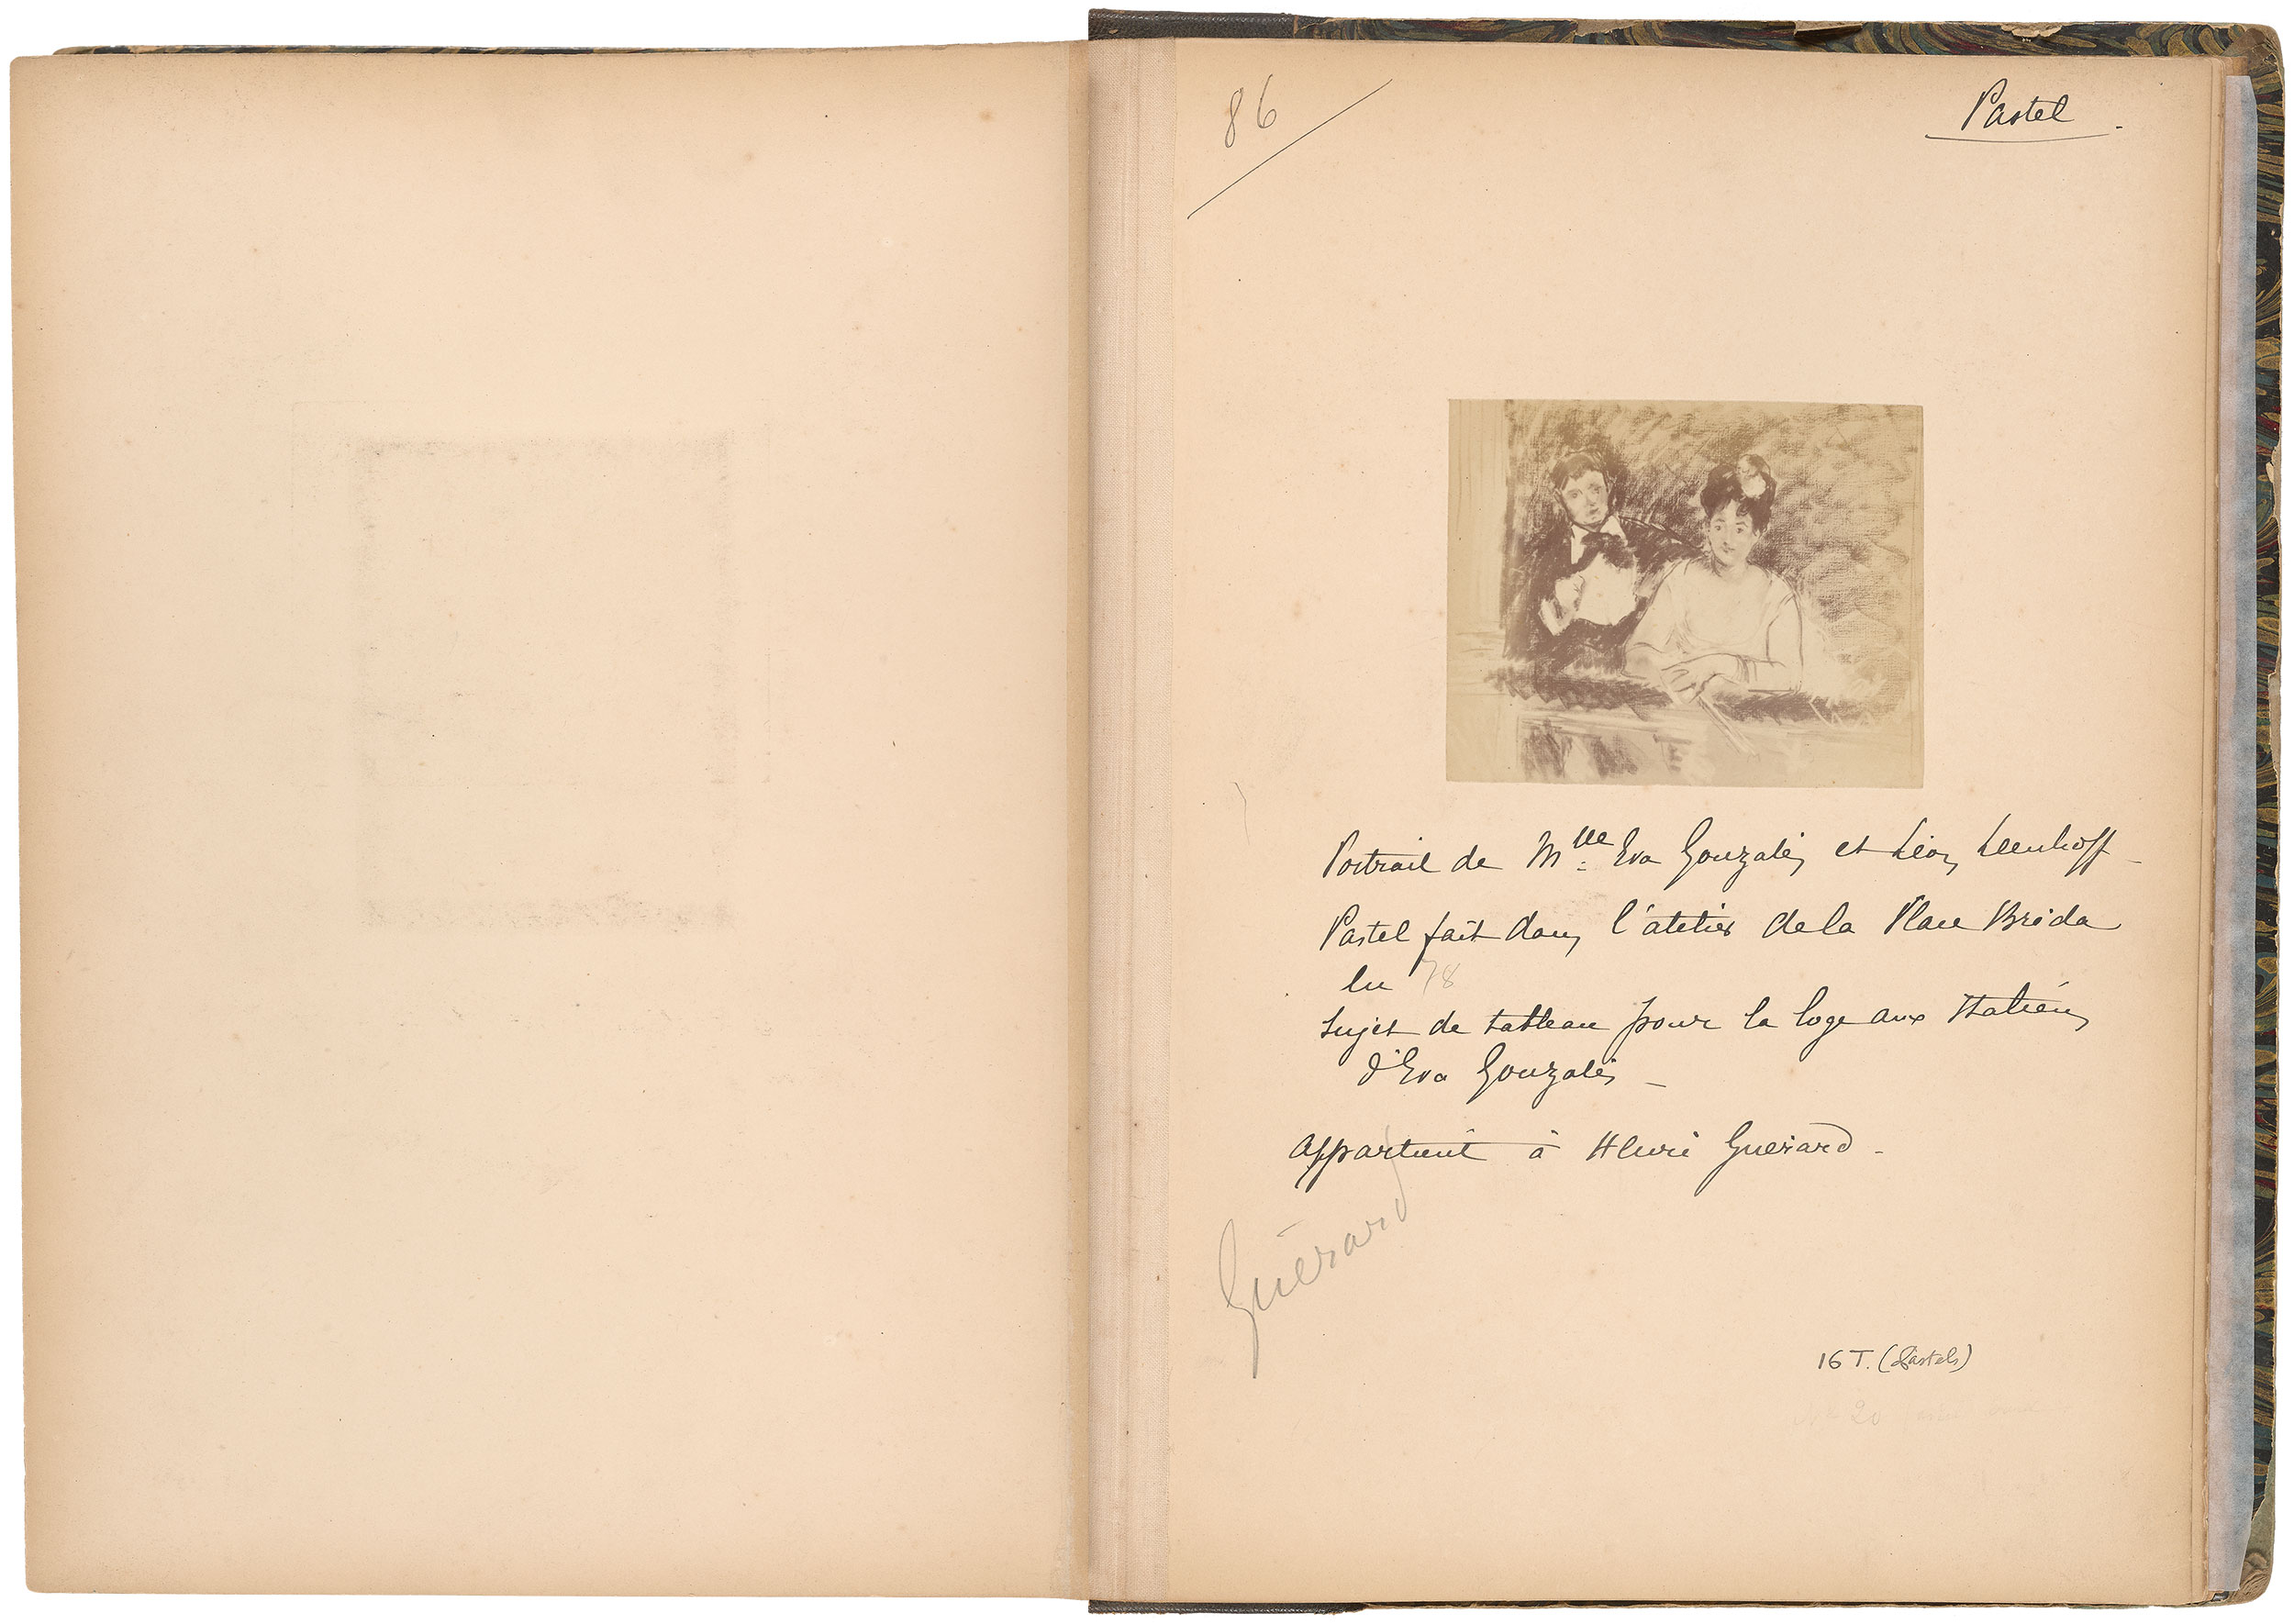 86
Pastel.
Portrait de Mlle Eva Gonzalès et Léon Leenhoff_
Pastel fait dans l'atelier de la Place Bréda
en 78
Sujet de tableau pour la loge aux Italiens
d'Eva Gonzalès_
appartient à Henri Guérard_
Guérard
16 T. (Pastels)
No 20